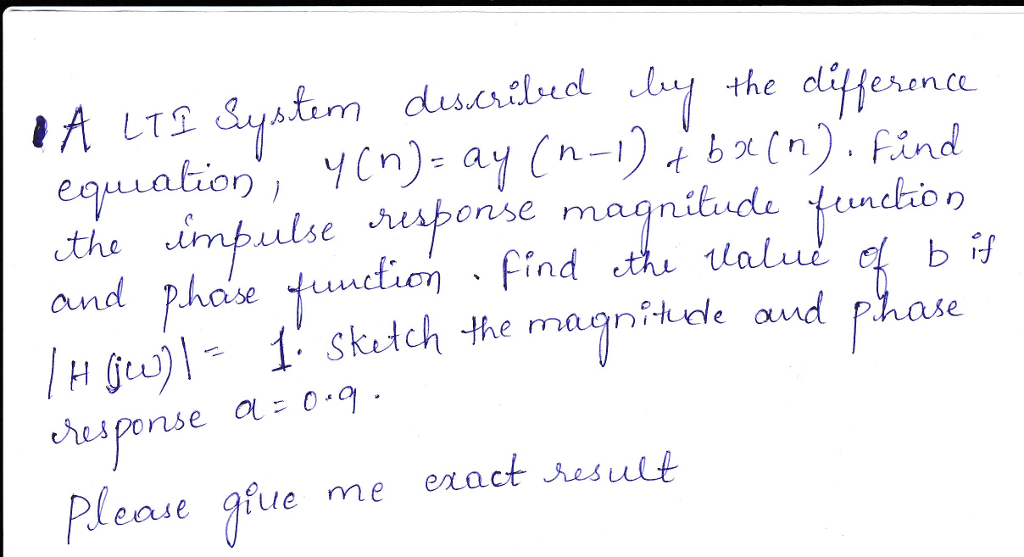 • A LTI System described by the difference
equation, y(n) = ay (n-1) + bx(n). Find
the impulse response magnitude function
and phase function. find the value of b if
|H(jw)| = 1. Sketch the magnitude and phase
response a = 0.9.
Please give me exact result